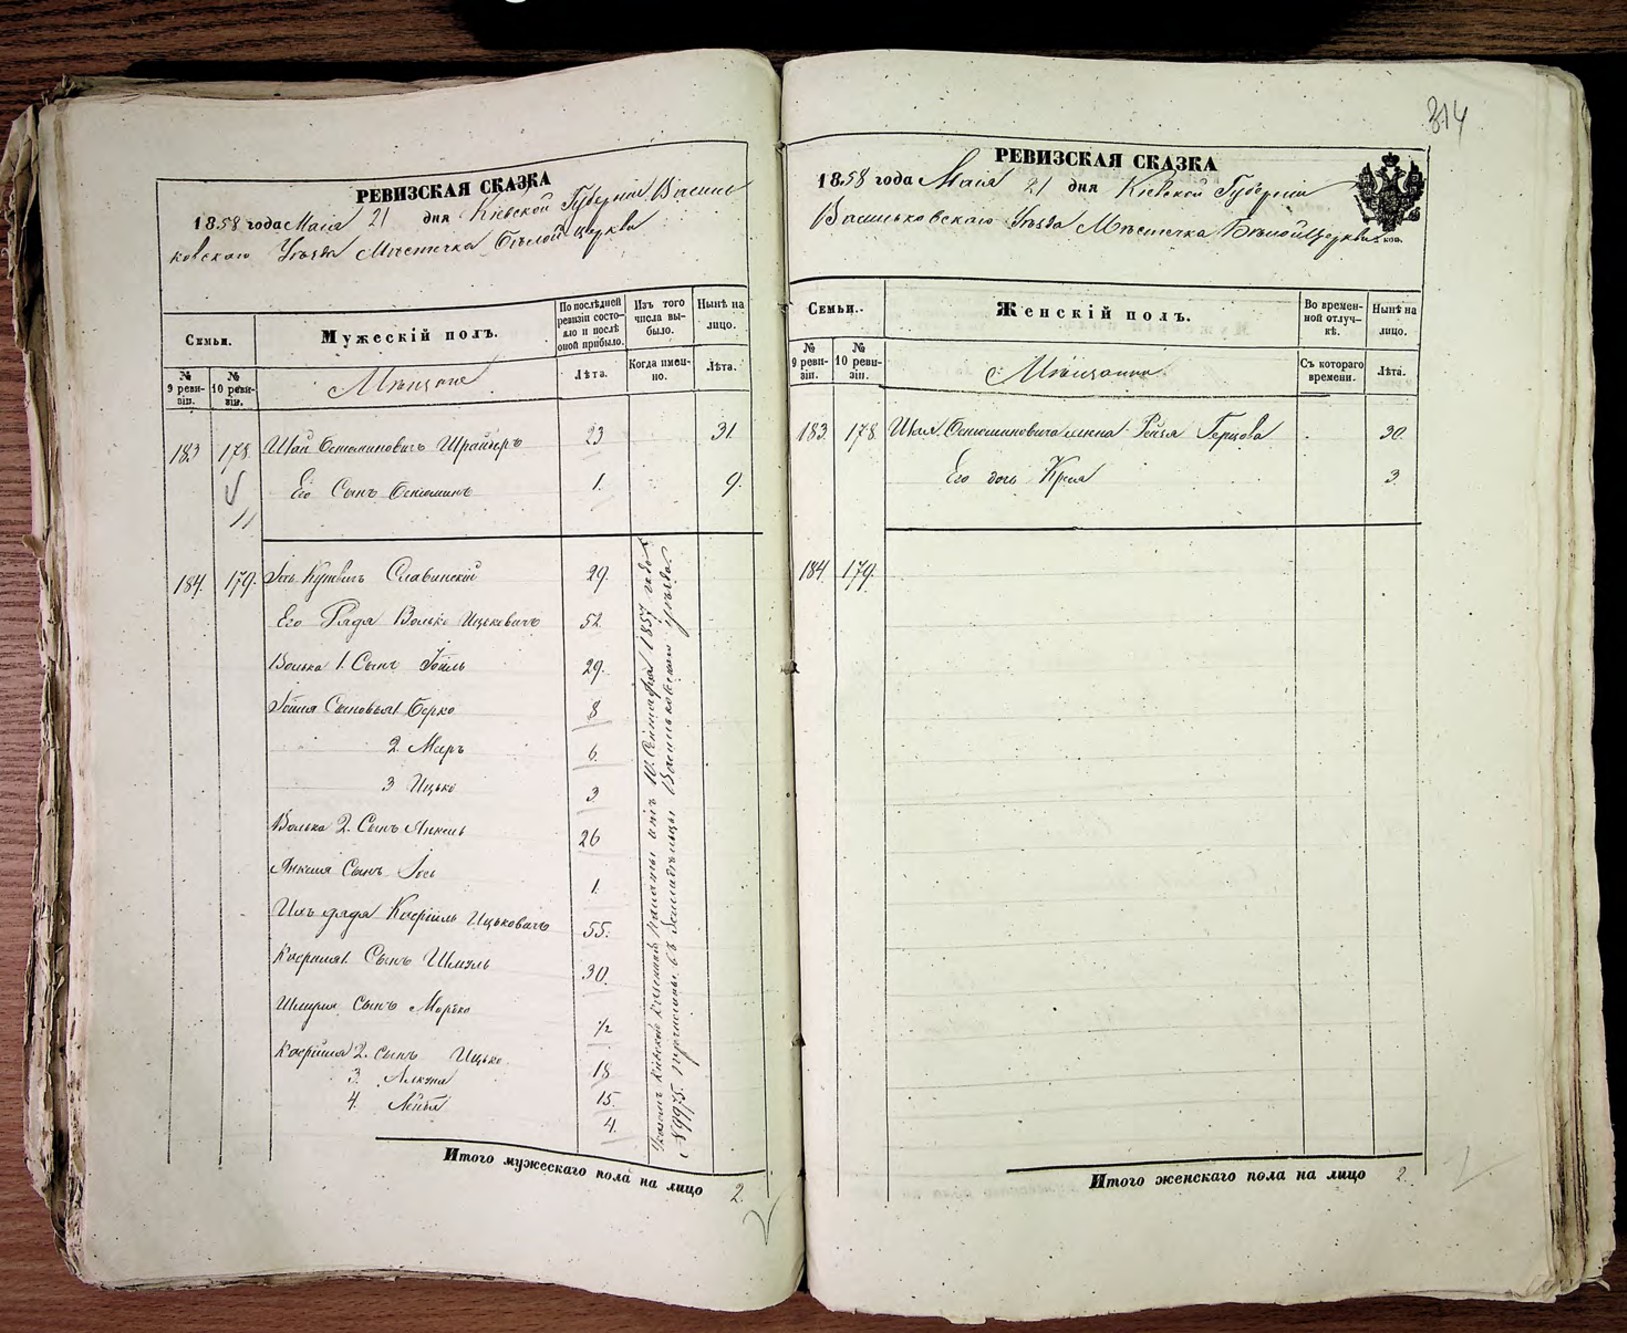 314
РЕВИЗСКАЯ СКАЗКА
1858 года Маія 21 дня Кіевской Губерніи Василь
ковскаго Уѣзда Мѣстечка Бѣлой Церкви
Семьи.
Мужескій полъ.
По послѣдней ревизіи состояло и послѣ оной прибыло.
Изъ того числа выбыло.
Нынѣ на лицо.
№ 9 ревизіи.
№ 10 ревизіи.
Мѣщане
Лѣта.
Когда именно.
Лѣта.
183 178 Шая 23 31.
Его Сынъ 1. 9.
184. 179. Славинскій 29.
Его Дядя Волько Ицьковичъ 52.
Волька 1. Сынъ Іойль 29.
Іойля Сыновья 1 Берко 8
2. 6.
3 Ицько 3
Волька 2. Сынъ Янкель 26
Янкеля Сынъ Іось 1.
Ихъ дядя Ицьковичъ 55.
1. Сынъ Шмуль 30.
Шмуля Сынъ Мордко 1/2
2. Сынъ Ицько 18
3. 15.
4. Лейба 4.
Указомъ Кіевской Казенной Палаты отъ 10. Сентября 1857 года
№ 9975. перечислены въ Васильковскаго уѣзда
Итого мужескаго пола на лицо 2.
РЕВИЗСКАЯ СКАЗКА
1858 года Маія 21 дня Кіевской Губерніи
Васильковскаго Уѣзда Мѣстечка Бѣлой Церкви
Семьи.
Женскій полъ.
Во временной отлучкѣ.
Нынѣ на лицо.
№ 9 ревизіи.
№ 10 ревизіи.
Мѣщанки
Съ котораго времени.
Лѣта.
183. 178. жена Рейзя Герцова 30.
Его дочь 3.
184 179.
Итого женскаго пола на лицо 2.